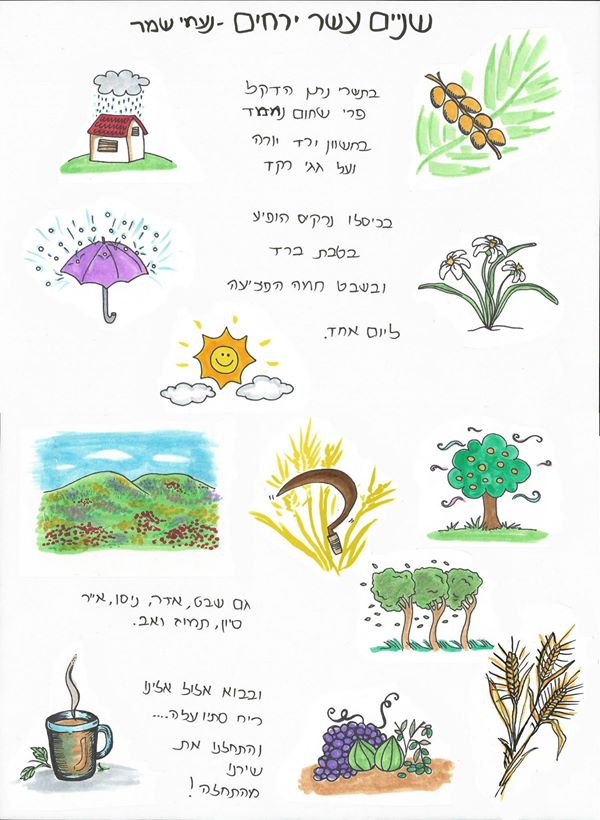 שניים עשר ירחים - נעמי שמר
בתשרי נתן הדקל
פרי שחום נחמד
בחשוון ירד יורה
ועל גגי רקד
בכיסלו נרקיס הופיע
בטבת ברד
ובשבט חמה הפציעה
ליום אחד.
גם שבט, אדר, ניסן, אייר
סיון, תמוז ואב.
ובבוא אלול אלינו
ריח סתיו עלה....
והתחלנו את
שירנו
מהתחלה!